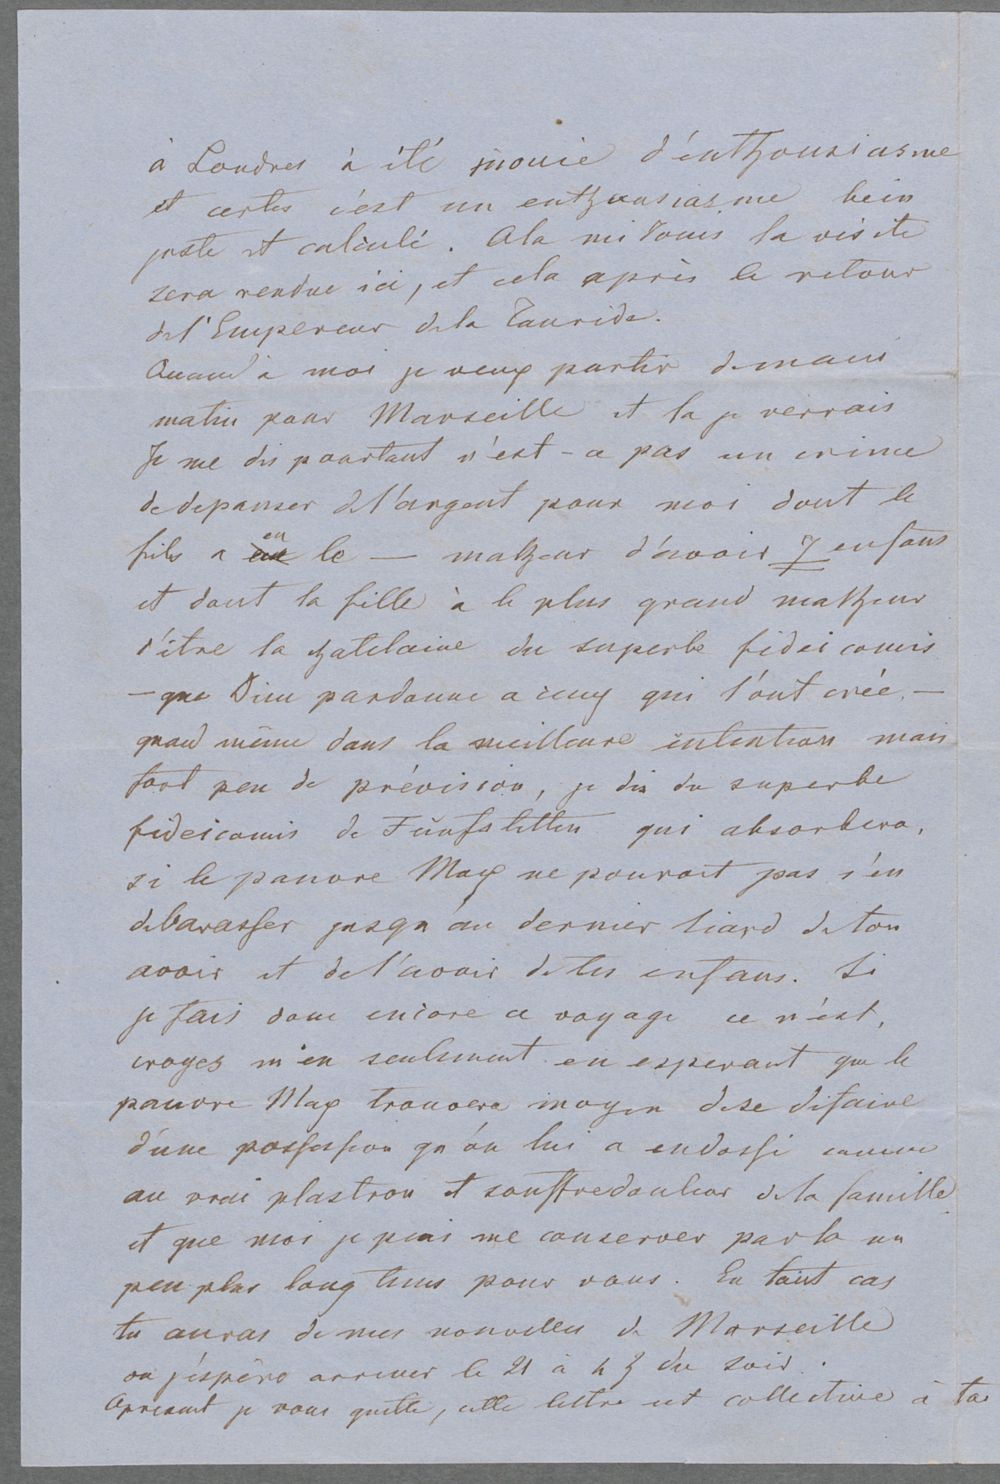 à Londres à été inouie d'enthousiasme
et certes c'est un enthousiasme bein
juste et calculé. A la mi Jouin la visite
sera rendue ici, et cela après le retour
de l'Empereur de la Tauride.
Quand à moi je veux partir demain
matin pour Marseille et la je verrais
Je me dis pourtant n'est-a pas un crime
de depenser de l'argent pour moi dont le
fils a en le — malheur d'avoir 7 enfans
et dont la fille à le plus grand malheur
d'être la chatelaine du superbe fidei comis
— que Dieu pardonne a ceux qui l'ont crée. —
quand même dans la meilleure intention mais
fort peu de prévision, je dis du superbe
fideicomis de Fünfstetten qui absorbera,
si le pauvre Max ne pouroit pas s'en
debarasser jusqu'au dernier liard de ton
avoir et de l'avoir de tes enfans. Si
je fais donc encore ce voyage ce n'est,
croyez m'en seulement en esperant que le
pauvre Max trouvera moyen de se défaire
d'une possession qu'on lui a endossé comme
au vrai plastron et souffredouleur de la famille
et que moi je puis me conserver par la un
peu plus long tems pour vous. En tout cas
tu auras de mes nouvelles de Marseille
ou j'éspère arriver le 21 à 4 ½ du soir.
Apresent je vous quitte, cette lettre est collective à toi